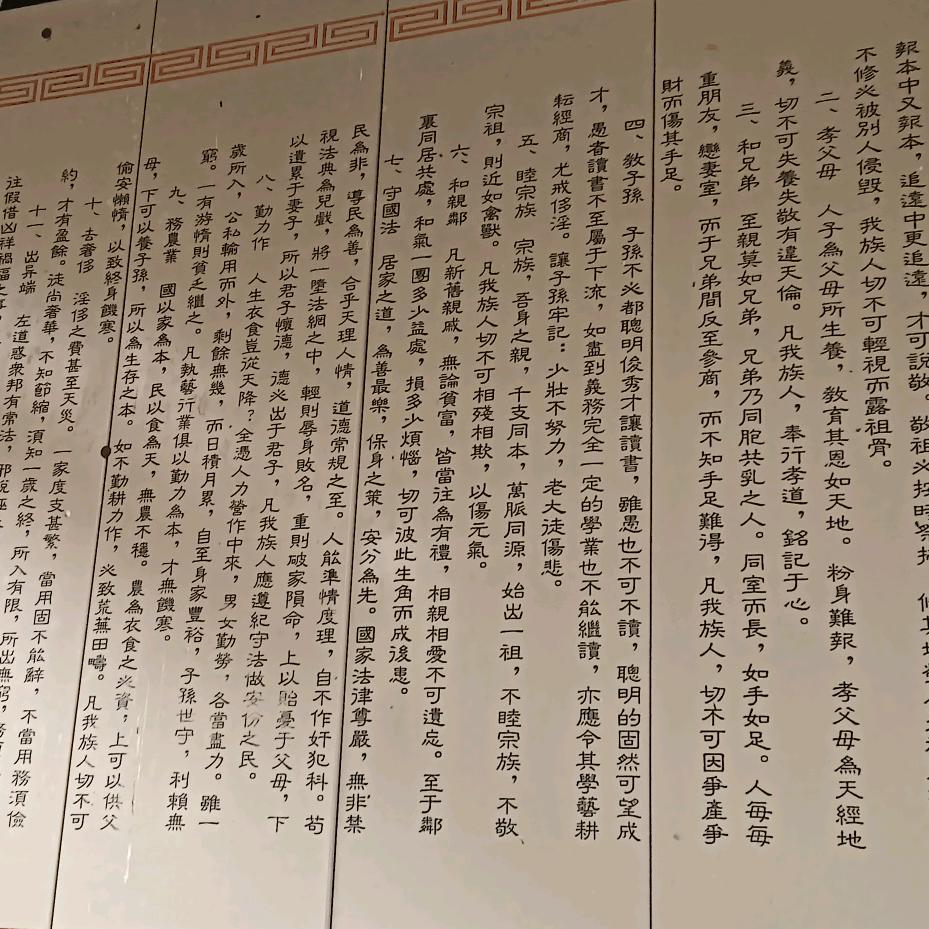 報本中又報本，追遠中更追遠，才可說敬。敬祖必按時祭掃
不修必被別人侵毀，我族人切不可輕視而露祖骨。
二、孝父母　人子為父母所生養，教育其恩如天地。粉身難報，孝父母為天經地
義，切不可失養失敬有違天倫。凡我族人，奉行孝道，銘記于心。
三、和兄弟　至親莫如兄弟，兄弟乃同胞共乳之人。同室而長，如手如足。人每每
重朋友，戀妻室，而于兄弟間反至參商，而不知手足難得，凡我族人，切不可因爭產爭
財而傷其手足。
四、教子孫　子孫不必都聰明俊秀才讓讀書，雖愚也不可不讀，聰明的固然可望成
才，愚者讀書不至屬于下流，如盡到義務完全一定的學業也不能繼讀，亦應令其學藝耕
耘經商，尤戒侈淫。讓子孫牢記：少壯不努力，老大徒傷悲。
五、睦宗族　宗族，吾身之親，千支同本，萬脈同源，始出一祖，不睦宗族，不敬
宗祖，則近如禽獸。凡我族人切不可相殘相欺，以傷元氣。
六、和親鄰　凡新舊親戚，無論貧富，皆當往為有禮，相親相愛不可遺忘。至于鄰
裏同居共處，和氣一團多少益處，損多少煩惱，切可彼此生角而成後患。
七、守國法　居家之道，為善最樂，保身之策，安分為先。國家法律尊嚴，無非禁
民為非，導民為善，合乎天理人情，道德常規之至。人能準情度理，自不作奸犯科。苟
視法典為兒戲，將一墮法網之中，輕則辱身敗名，重則破家隕命，上以貽憂于父母，下
以遺累于妻子，所以君子懷德，德必出于君子，凡我族人應遵紀守法做安份之民。
八、勤力作　人生衣食豈從天降？全憑人力營作中來，男女勤勞，各當盡力。雖一
歲所入，公私輸用而外，剩餘無幾，而日積月累，自至身家豐裕，子孫世守，利賴無
窮。一有游惰則貧乏繼之。凡執藝行業俱以勤力為本，才無饑寒。
九、務農業　國以家為本，民以食為天，無農不穩。農為衣食之必資，上可以供父
母，下可以養子孫，所以為生存之本。如不勤耕力作，必致荒蕪田疇。凡我族人切不可
偷安懶惰，以致終身饑寒。
十、去奢侈　淫侈之費甚至天災。一家度支甚繁，當用固不能辭，不當用務須儉
約，才有盈餘。徒尚奢華，不知節縮，須知一歲之終，所入有限，所出無窮，
十一、出异端　左道惑衆邦有常法，邪說
往假借凶祥禍福之